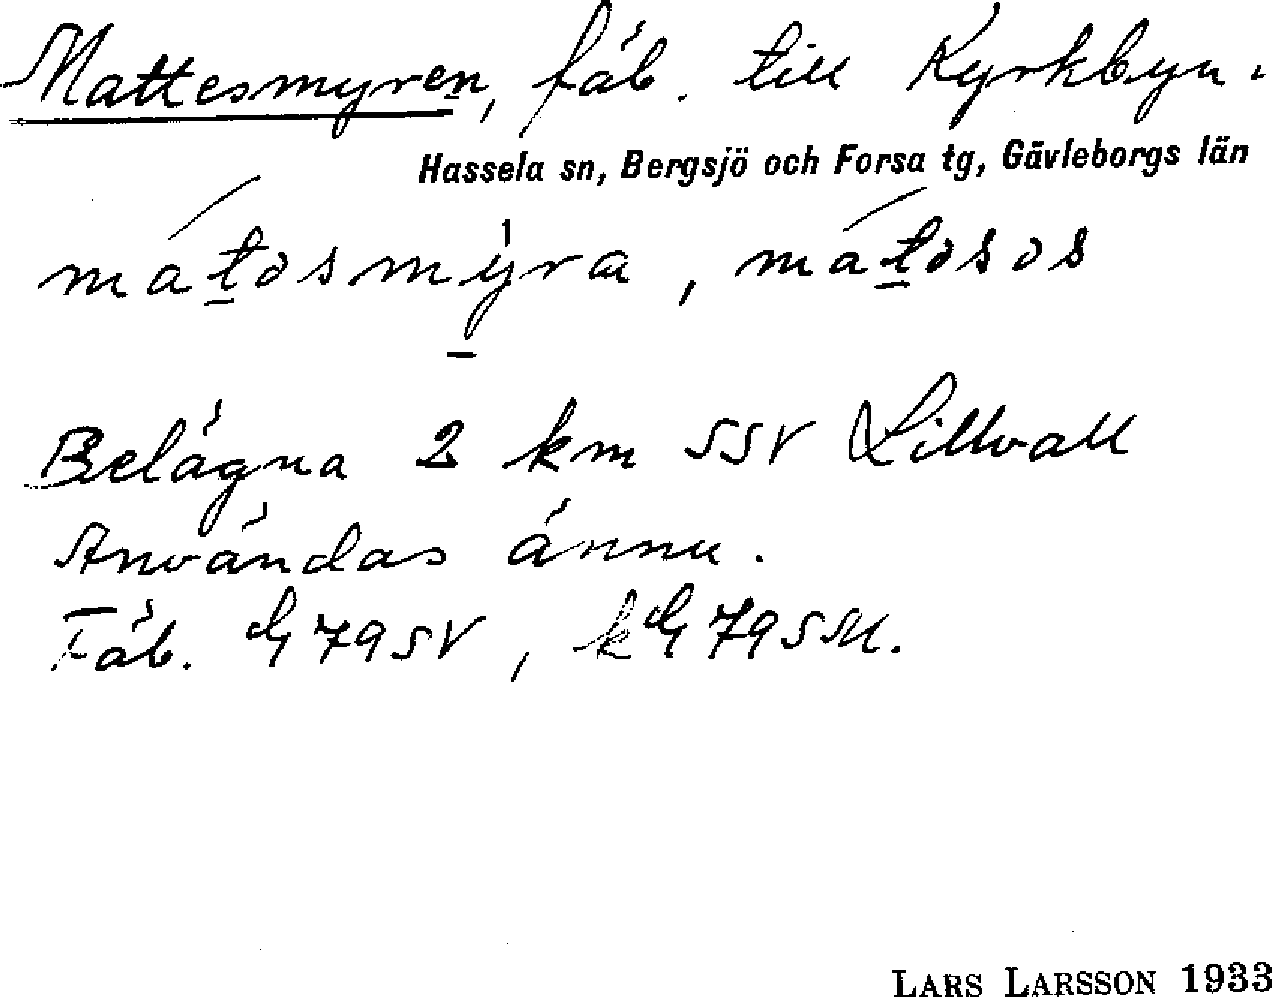 Mattesmyren, fäb. till Kyrkbyn.
Hassela sn, Bergsjö och Forsa tg, Gävleborgs län
mátəsmy̱ra, mátəsəs
Belägna 2 km SSV Lillvall
Användas ännu.
Fäb. G 79 SV, k G 79 SM.
LARS LARSSON 1933